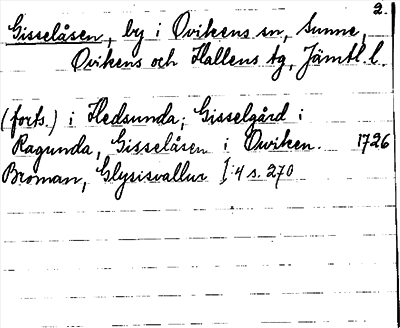 2.
Gisselåsen, by i Ovikens sn, Sunne,
Ovikens och Hallens tg, Jämtl. l.
(forts.) i Hedsunda; Gisselgård i
Ragunda, Gisselåsen i Owiken. 1726
Broman, Glysisvallur I:4 s. 270